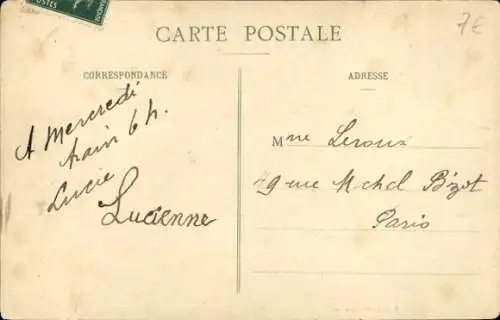 POSTES
7€
CARTE POSTALE
CORRESPONDANCE
A Mercredi
train 6 h.
Lucie
Lucienne
ADRESSE
Mme Leroux
49 rue Mchel Bizot
Paris